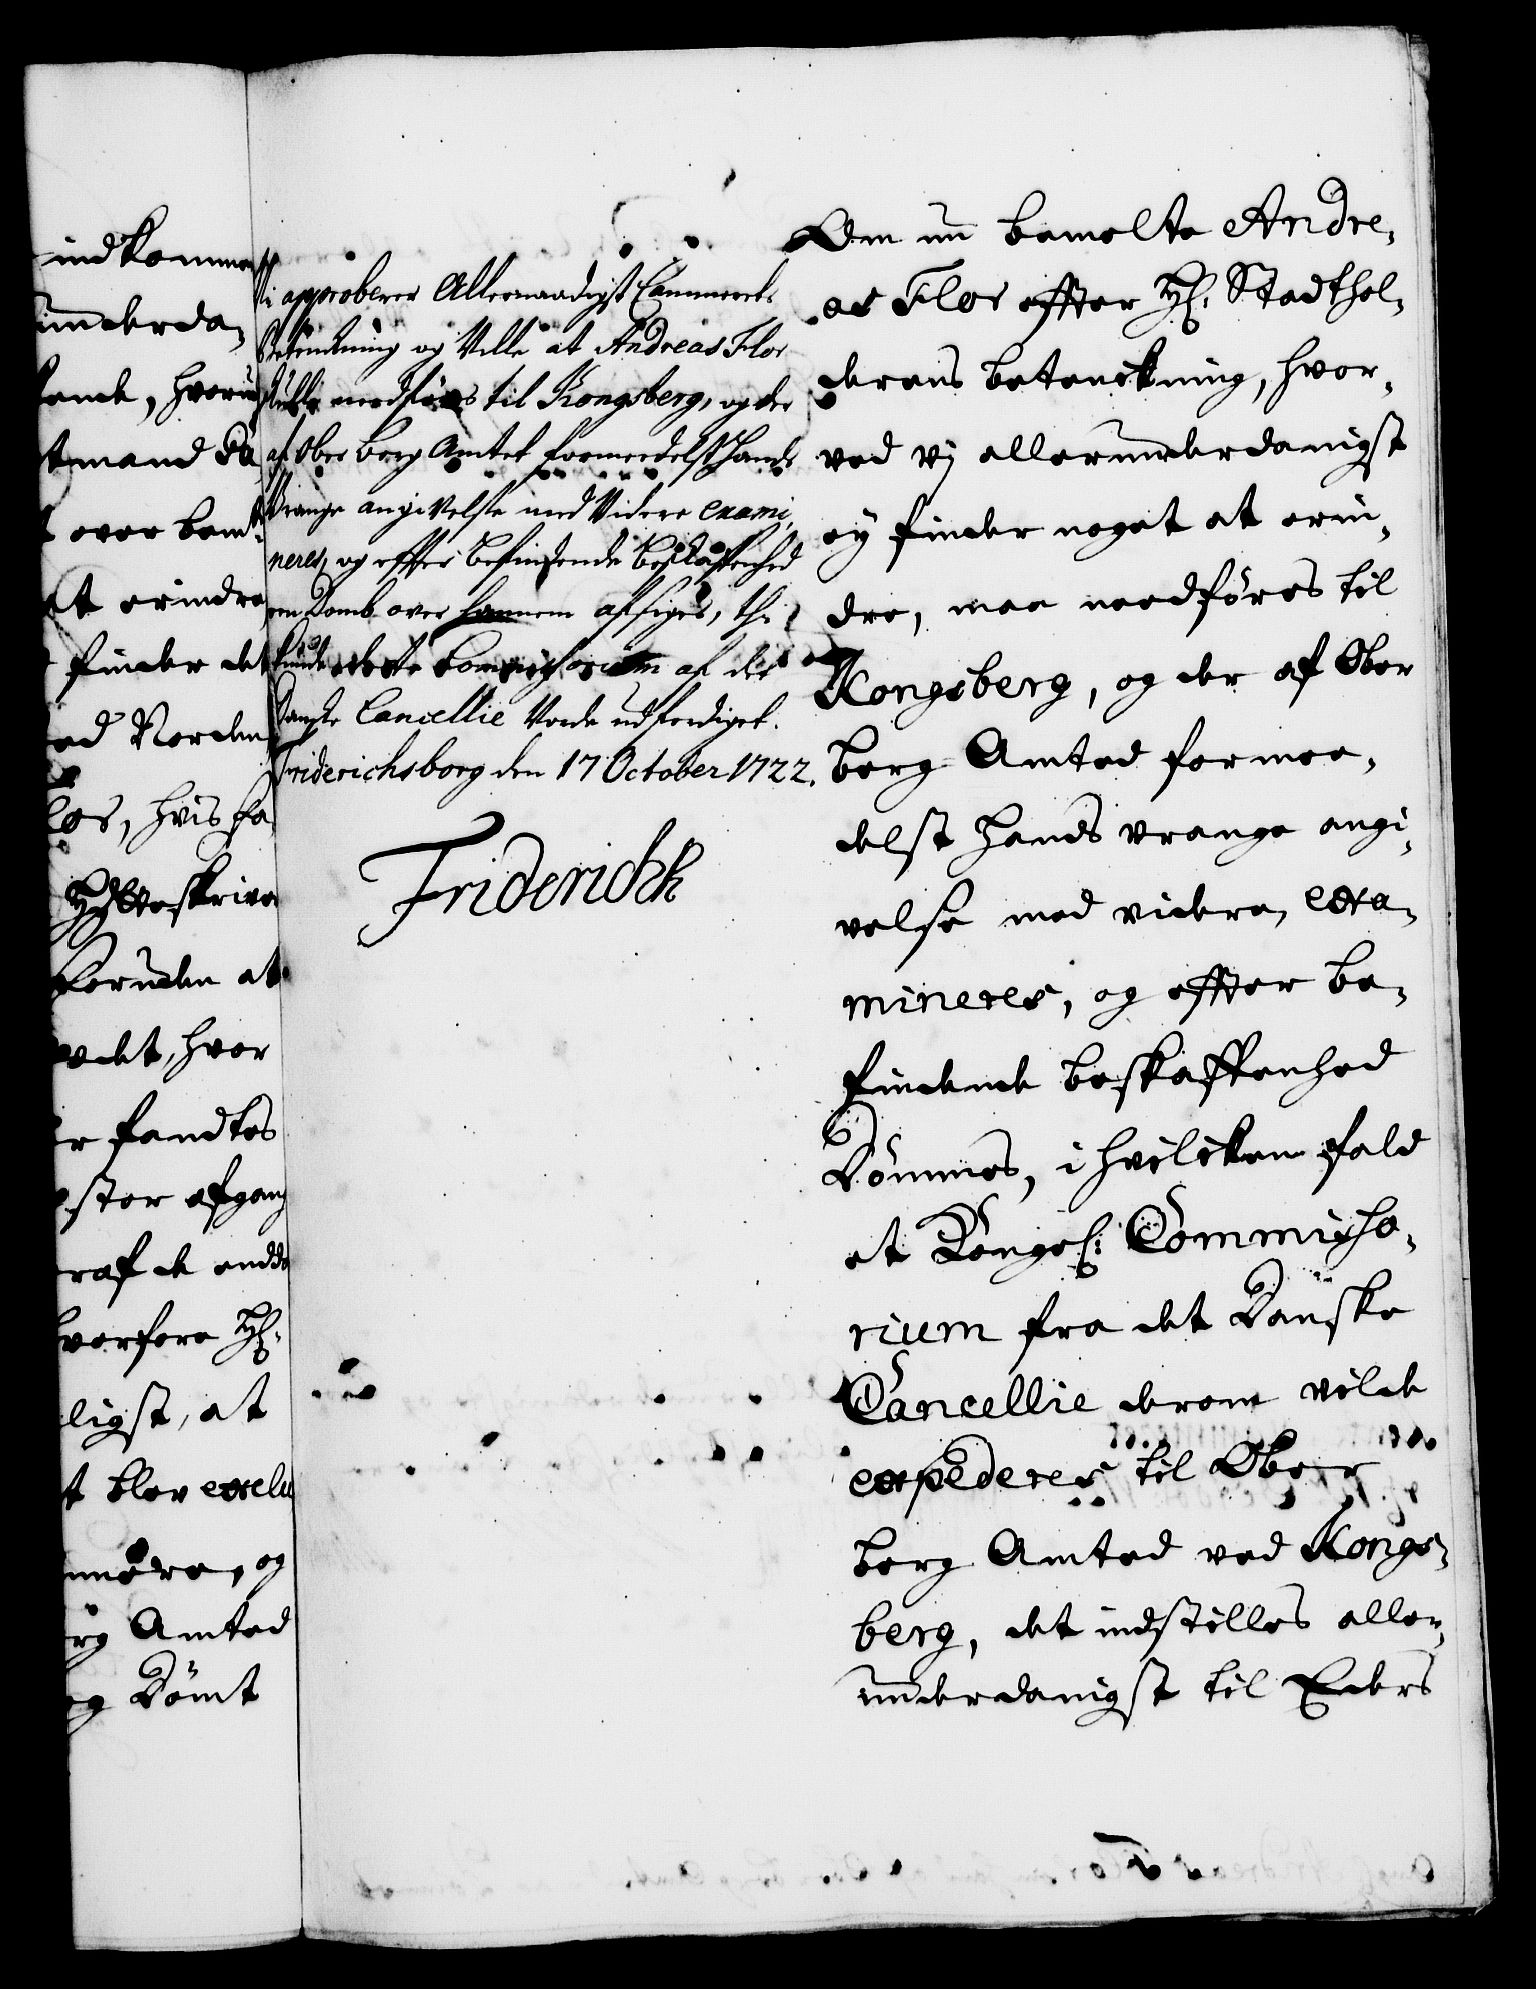 indkomme
underda-
ende, hvoru
tmand Da
t over bem:te
t erindre
finder det
ed Norden
los, hvis fa
Hÿtteskriver
foruden at
edet, hvor
r fandtes
stor afgang
raf de endda
hvorfore H:
ligst, at
t blev exclu
nnere, og
rg Amted
og Dömt
Vi approberer Allernaadigst Cammerets
Betænkning og Ville at Andreas Flor
skulle nedføres til Kongsberg, og der
af Ober Berg Amtet formedelst hands
Vrange angivelse med Videre exami,
neres, og effter befindende beskaffenhed
en Domb over hannem afsiges, th:
kunde et Commissorium af det
Danske Cancellie Vorde udferdiget.
Friderichsborg den 17 October 1722.
Friderich R
Om nu bemelte Andre,
as Flor effter H: Stadthol,
derens betenckning, hvor,
ved vj allerunderdanigst
ey finder noget at erin,
dre, maa needföres til
Kongsberg, og der af Ober
berg Amted formee,
delst hands vrange angi,
velse med videre, exa,
mineres, og effter be,
findende beskaffenhed
Dömmes, i hvilcken fald
et Kongel: Commisso,
rium fra det Danske
Cancellie derom vilde
expederes til Ober
berg Amted ved Kongs,
berg, det indstilles aller,
underdanigst til Eders